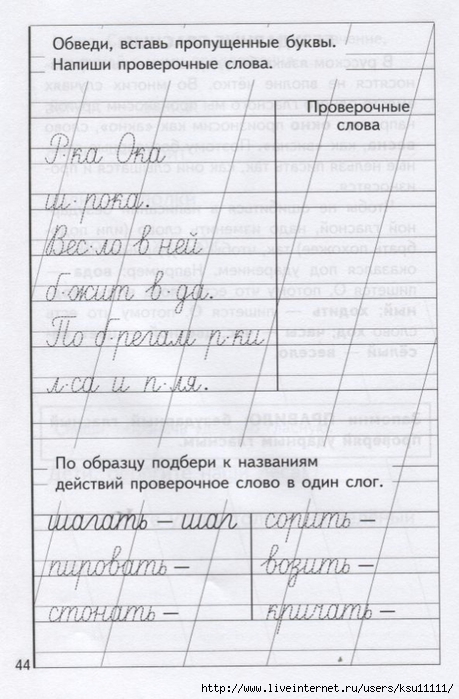 Обведи, вставь пропущенные буквы.
Напиши проверочные слова.
Проверочные
слова
Р·ка Ока
ш·рока.
Вес·ло в ней
б·жит в·да.
По б·регам р·ки
л·са и п·ля.
По образцу подбери к названиям
действий проверочное слово в один слог.
шагать – шаг
сорить –
пировать –
возить –
стонать –
кричать –
44
http://www.liveinternet.ru/users/ksu11111/